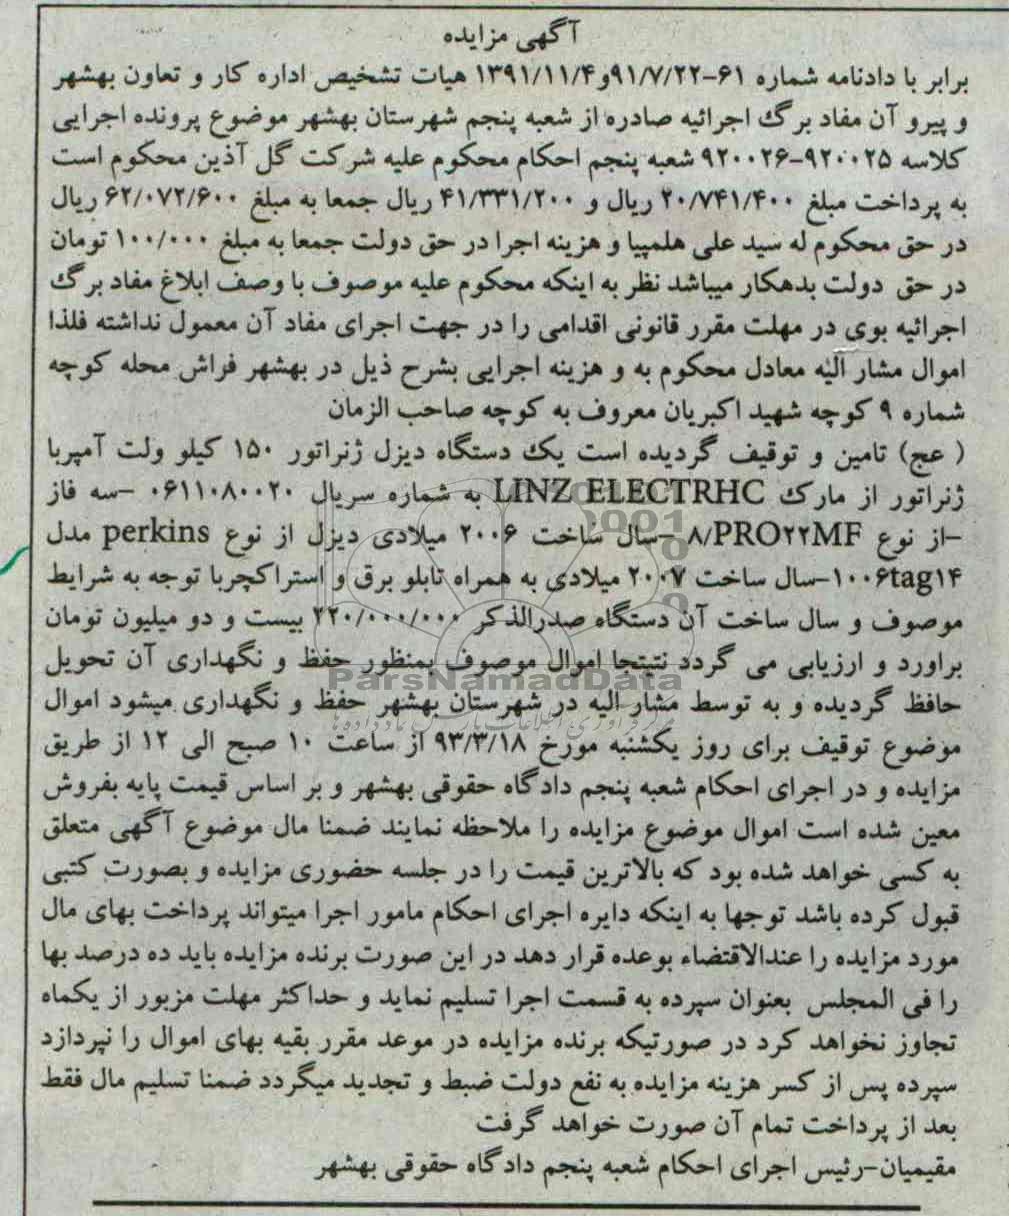 آگهی مزایده
برابر با دادنامه شماره ۶۱-۹۱/۷/۲۲و۱۳۹۱/۱۱/۴ هیات تشخیص اداره کار و تعاون بهشهر
و پیرو آن مفاد برگ اجرائیه صادره از شعبه پنجم شهرستان بهشهر موضوع پرونده اجرایی
کلاسه ۹۲۰۰۲۵-۹۲۰۰۲۶ شعبه پنجم احکام محکوم علیه شرکت گل آذین محکوم است
به پرداخت مبلغ ۲۰/۷۴۱/۴۰۰ ریال و ۴۱/۳۳۱/۲۰۰ ریال جمعا به مبلغ ۶۲/۰۷۲/۶۰۰ ریال
در حق محکوم له سید علی هلمپیا و هزینه اجرا در حق دولت جمعا به مبلغ ۱۰۰/۰۰۰ تومان
در حق دولت بدهکار میباشد نظر به اینکه محکوم علیه موصوف با وصف ابلاغ مفاد برگ
اجرائیه بوی در مهلت مقرر قانونی اقدامی را در جهت اجرای مفاد آن معمول نداشته فلذا
اموال مشار الیه معادل محکوم به و هزینه اجرایی بشرح ذیل در بهشهر فراش محله کوچه
شماره ۹ کوچه شهید اکبریان معروف به کوچه صاحب الزمان
( عج) تامین و توقیف گردیده است یک دستگاه دیزل ژنراتور ۱۵۰ کیلو ولت آمپربا
ژنراتور از مارک LINZ ELECTRHC به شماره سریال ۰۶۱۱۰۸۰۰۲۰ -سه فاز
-از نوع ۸/PRO۲۲MF -سال ساخت ۲۰۰۶ میلادی دیزل از نوع perkins مدل
۱۰۰۶tag۱۴-سال ساخت ۲۰۰۷ میلادی به همراه تابلو برق و استراکچربا توجه به شرایط
موصوف و سال ساخت آن دستگاه صدرالذکر ۲۲۰/۰۰۰/۰۰۰ بیست و دو میلیون تومان
براورد و ارزیابی می گردد نتیتجا اموال موصوف بمنظور حفظ و نگهداری آن تحویل
ParsNamadData
حافظ گردیده و به توسط مشار الیه در شهرستان بهشهر حفظ و نگهداری میشود اموال
موضوع توقیف برای روز یکشنبه مورخ ۹۳/۳/۱۸ از ساعت ۱۰ صبح الی ۱۲ از طریق
مزایده و در اجرای احکام شعبه پنجم دادگاه حقوقی بهشهر و بر اساس قیمت پایه بفروش
معین شده است اموال موضوع مزایده را ملاحظه نمایند ضمنا مال موضوع آگهی متعلق
به کسی خواهد شده بود که بالاترین قیمت را در جلسه حضوری مزایده و بصورت کتبی
قبول کرده باشد توجها به اینکه دایره اجرای احکام مامور اجرا میتواند پرداخت بهای مال
مورد مزایده را عندالاقتضاء بوعده قرار دهد در این صورت برنده مزایده باید ده درصد بها
را فی المجلس بعنوان سپرده به قسمت اجرا تسلیم نماید و حداکثر مهلت مزبور از یکماه
تجاوز نخواهد کرد در صورتیکه برنده مزایده در موعد مقرر بقیه بهای اموال را نپردازد
سپرده پس از کسر هزینه مزایده به نفع دولت ضبط و تجدید میگردد ضمنا تسلیم مال فقط
بعد از پرداخت تمام آن صورت خواهد گرفت
مقیمیان-رئیس اجرای احکام شعبه پنجم دادگاه حقوقی بهشهر